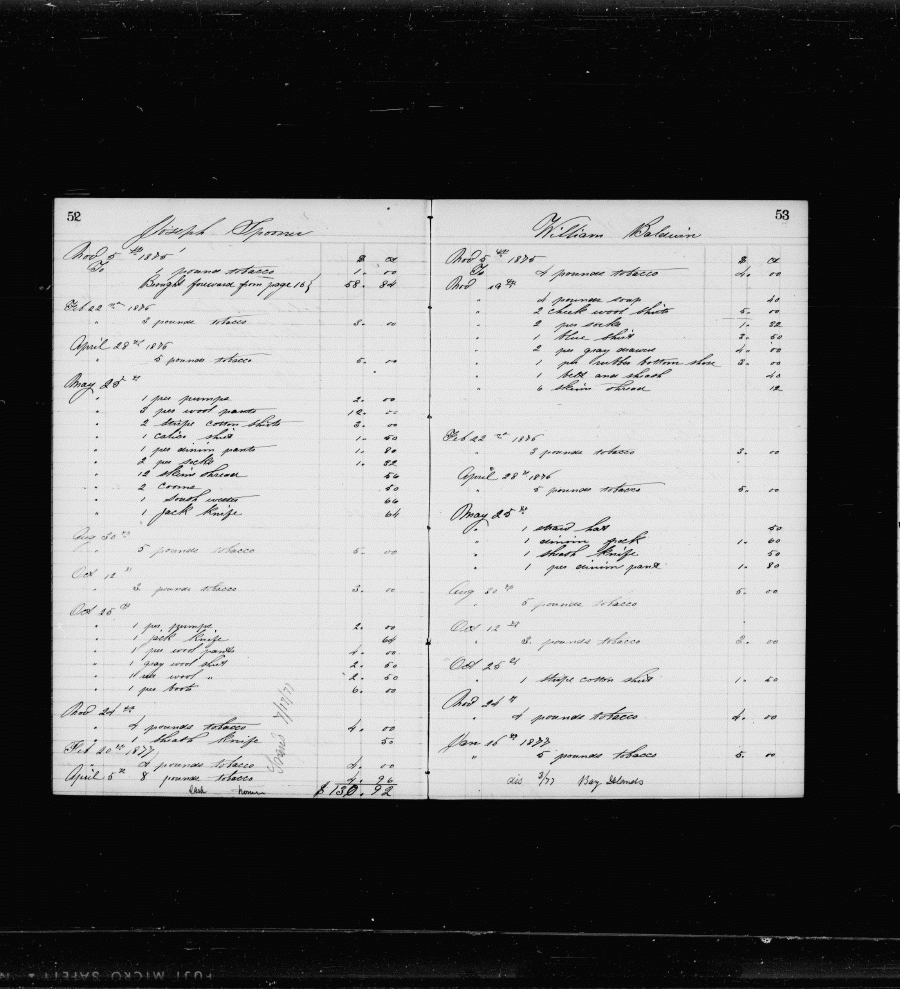 52
Joseph Spooner
Nov 5th 1875 $ ct
To 1 pounds tobacco 1. 00
Brought forward from page 16} 58. 84
Feb 22nd 1876
" 3 pounds tobacco 3. 00
April 28th 1876
" 5 pounds tobacco 5. 00
May 25th
" 1 per pumps 2. 00
" 3 per wool pants 12. 00
" 2 stripe cotton shirts 3. 00
" 1 calico shirt 1. 50
" 1 per dinim pants 1. 80
" 2 per socks 1. 32
" 12 skeins thread 56
" 2 50
" 1 south wester 66
" 1 jack knife 64
Aug 30th
" 5 pounds tobacco 5. 00
Oct 12th
" 3 pounds tobacco 3. 00
Oct 25th
" 1 per pumps 2. 00
" 1 jack knife 64
" 1 per wool pants 4. 00
" 1 gray wool shirt 2. 50
" 1 wool " 2. 50
" 1 per boots 6. 00
Nov 24th
" 4 pounds tobacco 4. 00
" 1 sheath knife 50
Feb 20th 1877
" 4 pounds tobacco 4. 00
April 5th 8 pounds tobacco 4. 96
$130.92
53
William Baldwin
Nov 5th 1875 $ ct
To 4 pounds tobacco 4. 00
Nov 19th
" 4 pounds soap 40
" 2 check wool shirts 5. 00
" 2 per socks 1. 32
" 1 blue shirt 3. 50
" 2 per gray drawers 4. 00
" 1 per rubber bottom shoe 3. 00
" 1 belt and sheath 40
" 6 skeins thread 12
Feb 22nd 1876
" 3 pounds tobacco 3. 00
April 28th 1876
" 5 pounds tobacco 5. 00
May 25th
" 1 straw hat 50
" 1 dinim 1. 60
" 1 sheath knife 50
" 1 per dinim pants 1. 80
Aug 30th
" 5 pounds tobacco 5. 00
Oct 12th
" 3 pounds tobacco 3. 00
Oct 25th
" 1 stripe cotton shirt 1. 50
Nov 24th
4 pounds tobacco 4. 00
Jan 16th 1877
" 5 pounds tobacco 5. 00
dis 3/77 Bay Islands
FUJI MICRO SAFETY